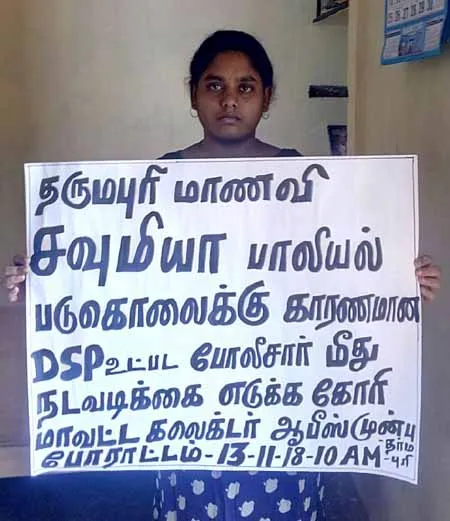 தருமபுரி மாணவி
சவுமியா பாலியல்
படுகொலைக்கு காரணமான
DSP உட்பட போலீசார் மீது
நடவடிக்கை எடுக்க கோரி
மாவட்ட கலைக்டர் ஆபீஸ்முன்பு
போராட்டம்-13-11-18-10 AM-தரும
-புரி